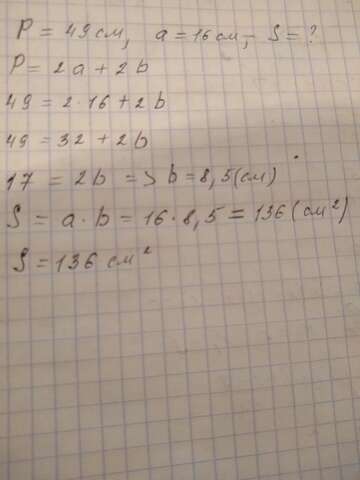 P = 49 см, a = 16 см, S = ?
P = 2a + 2b
49 = 2·16 + 2b
49 = 32 + 2b
17 = 2b => b = 8,5 (см)
S = a·b = 16·8,5 = 136 (см²)
S = 136 см²